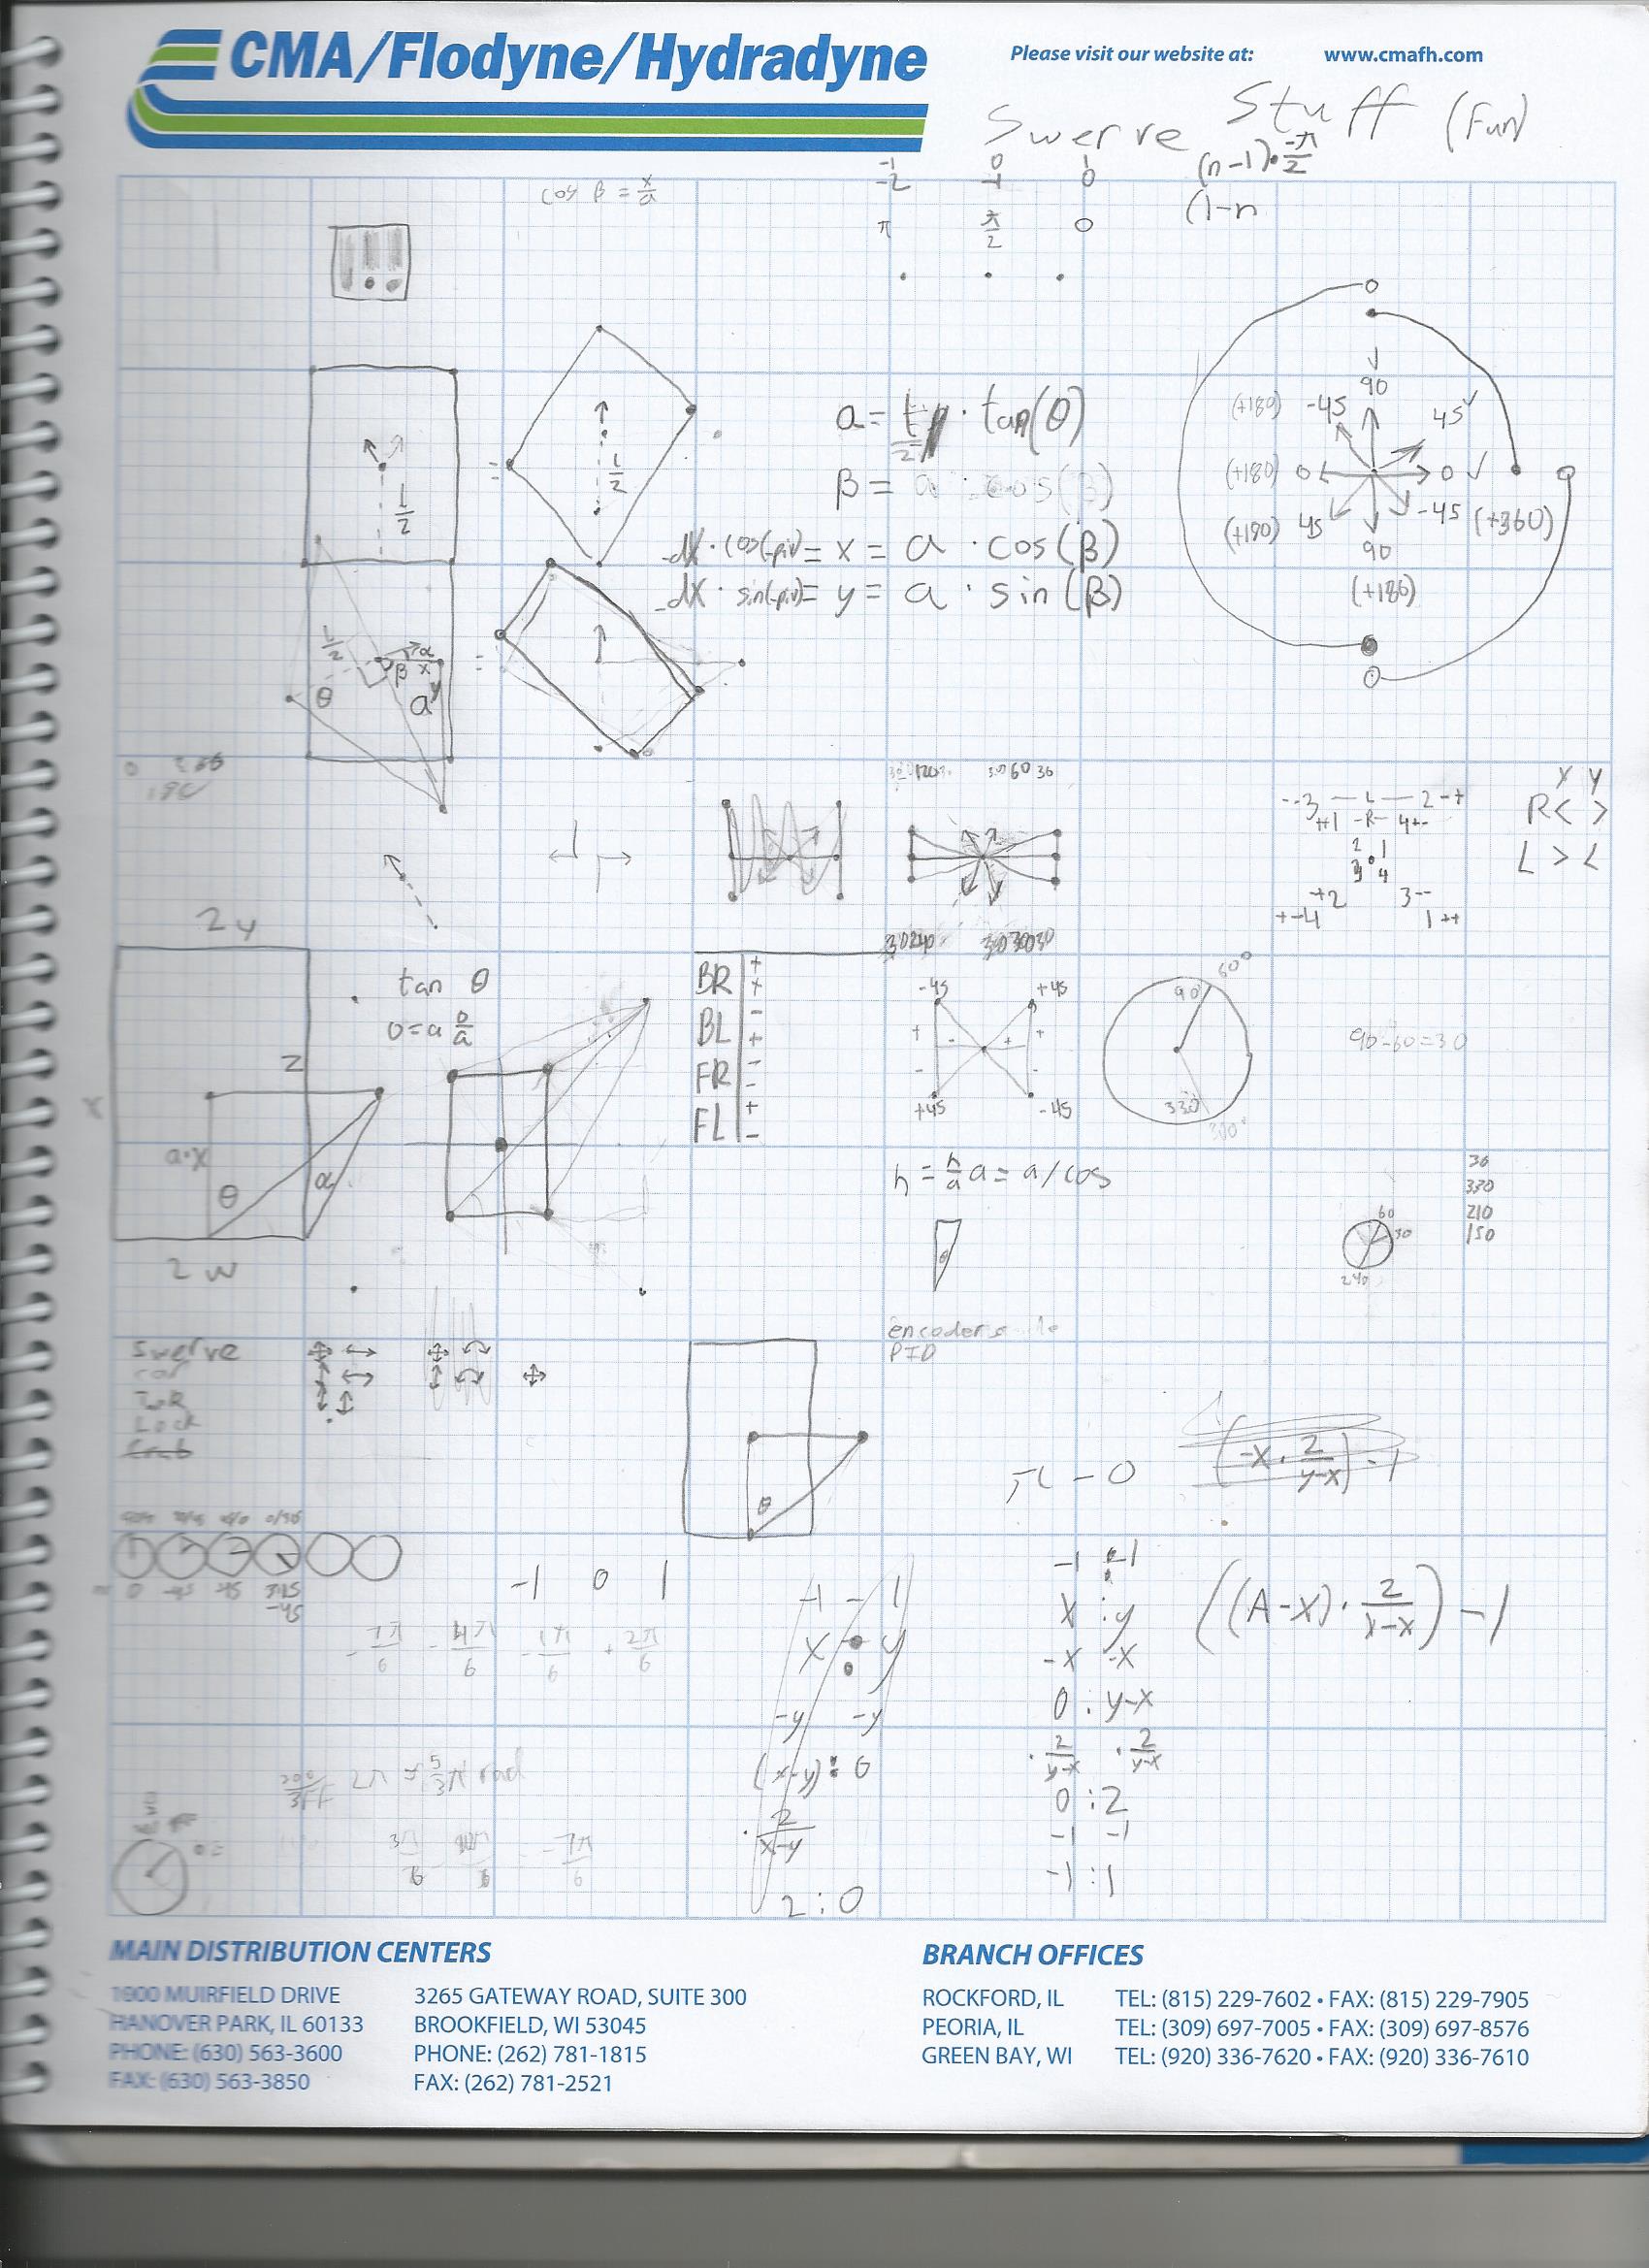 CMA/Flodyne/Hydradyne
Please visit our website at: www.cmafh.com
Swerve Stuff (Fun)
-1 0 1
-2 -1 0
(n-1)·-π/2
(1-n
cos β = x/a
π π/2 0
a = L/2 · tan(θ)
β = a · cos(β)
-dX · cos(-piv) = x = a · cos(β)
-dX · sin(-piv) = y = a · sin(β)
L/2
L/2
90
(+180) -45 45
(+180) 0 0
(+180) 45 -45 (+360)
90
(+180)
L/2
θ β x α
a y
X Y
R < >
L > <
--3 — L — 2-+
++1 -R- 4+-
2 1
3 4
+2 3--
+-4 1++
2y
tan θ
o = a o/a
z
x
a·x
θ α
2w
BR + +
BL - +
FR - -
FL + -
-45 +45
+ - + +
- -
+45 -45
60°
90
330
300°
90-60=30
h = h/a a = a/cos
θ
30
330
210
150
60
30
240
encoders
PID
swerve
car
Lock
Crab
θ
π - 0
(-x · 2/(y-x)) - 1
0 -45 45 315
-45
-1 0 1
-7π/6 -4π/6 -1π/6 +2π/6
-1 - 1
x : y
-y -y
(x-y) : 0
· 2/(x-y)
2 : 0
-1 : 1
x : y
-x -x
0 : y-x
· 2/(y-x) · 2/(y-x)
0 : 2
-1 -1
-1 : 1
((A-x) · 2/(y-x)) - 1
2π = 5/3 π rad
-7π/6
MAIN DISTRIBUTION CENTERS
1900 MUIRFIELD DRIVE
HANOVER PARK, IL 60133
PHONE: (630) 563-3600
FAX: (630) 563-3850
3265 GATEWAY ROAD, SUITE 300
BROOKFIELD, WI 53045
PHONE: (262) 781-1815
FAX: (262) 781-2521
BRANCH OFFICES
ROCKFORD, IL TEL: (815) 229-7602 • FAX: (815) 229-7905
PEORIA, IL TEL: (309) 697-7005 • FAX: (309) 697-8576
GREEN BAY, WI TEL: (920) 336-7620 • FAX: (920) 336-7610